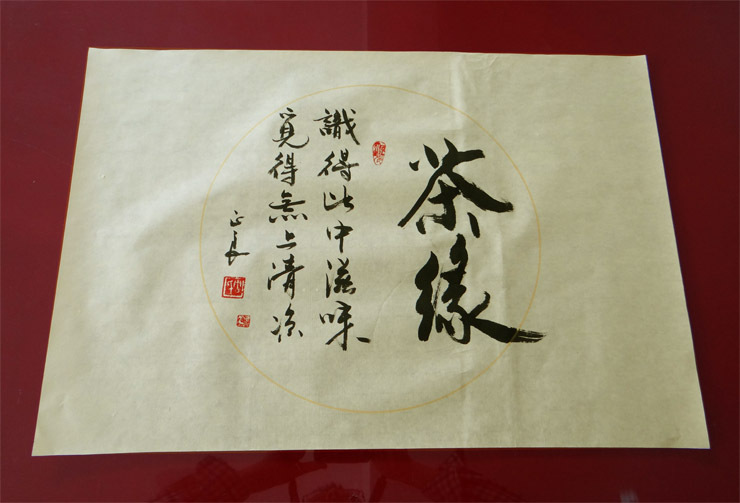 茶緣
識得此中滋味
覓得無上清凉
正良